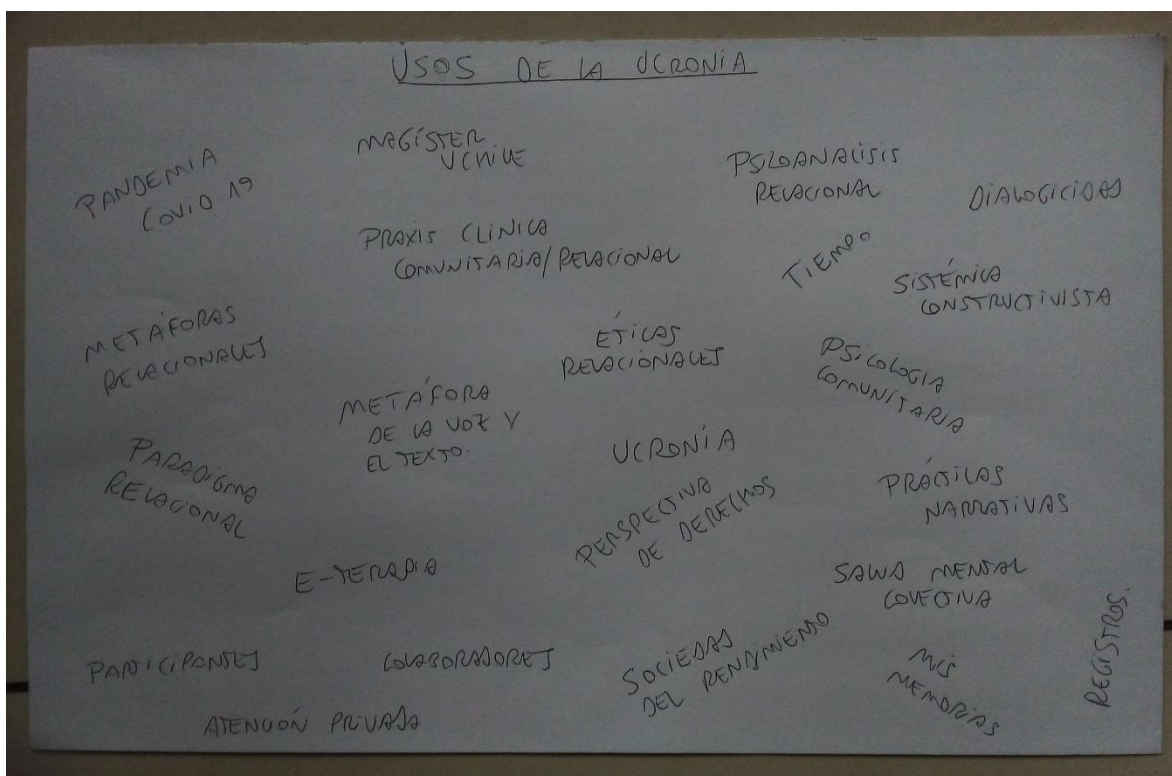 USOS DE LA UCRONÍA
PANDEMIA
COVID 19
MAGÍSTER
UCHILE
PSICOANALISIS
RELACIONAL
DIALOGICIDAD
PRAXIS CLÍNICA
COMUNITARIA/RELACIONAL
TIEMPO
SISTÉMICA
CONSTRUCTIVISTA
METÁFORAS
RELACIONALES
ÉTICAS
RELACIONALES
PSICOLOGIA
COMUNITARIA
METÁFORA
DE LA VOZ Y
EL TEXTO.
UCRONÍA
PARADIGMA
RELACIONAL
PERSPECTIVA
DE DERECHOS
PRÁCTICAS
NARRATIVAS
E-TERAPIA
SALUD MENTAL
COLECTIVA
PARTICIPANTES
COLABORADORES
SOCIEDAD
DEL RENDIMIENTO
MIS
MEMORIAS
REGISTROS.
ATENCIÓN PRIVADA